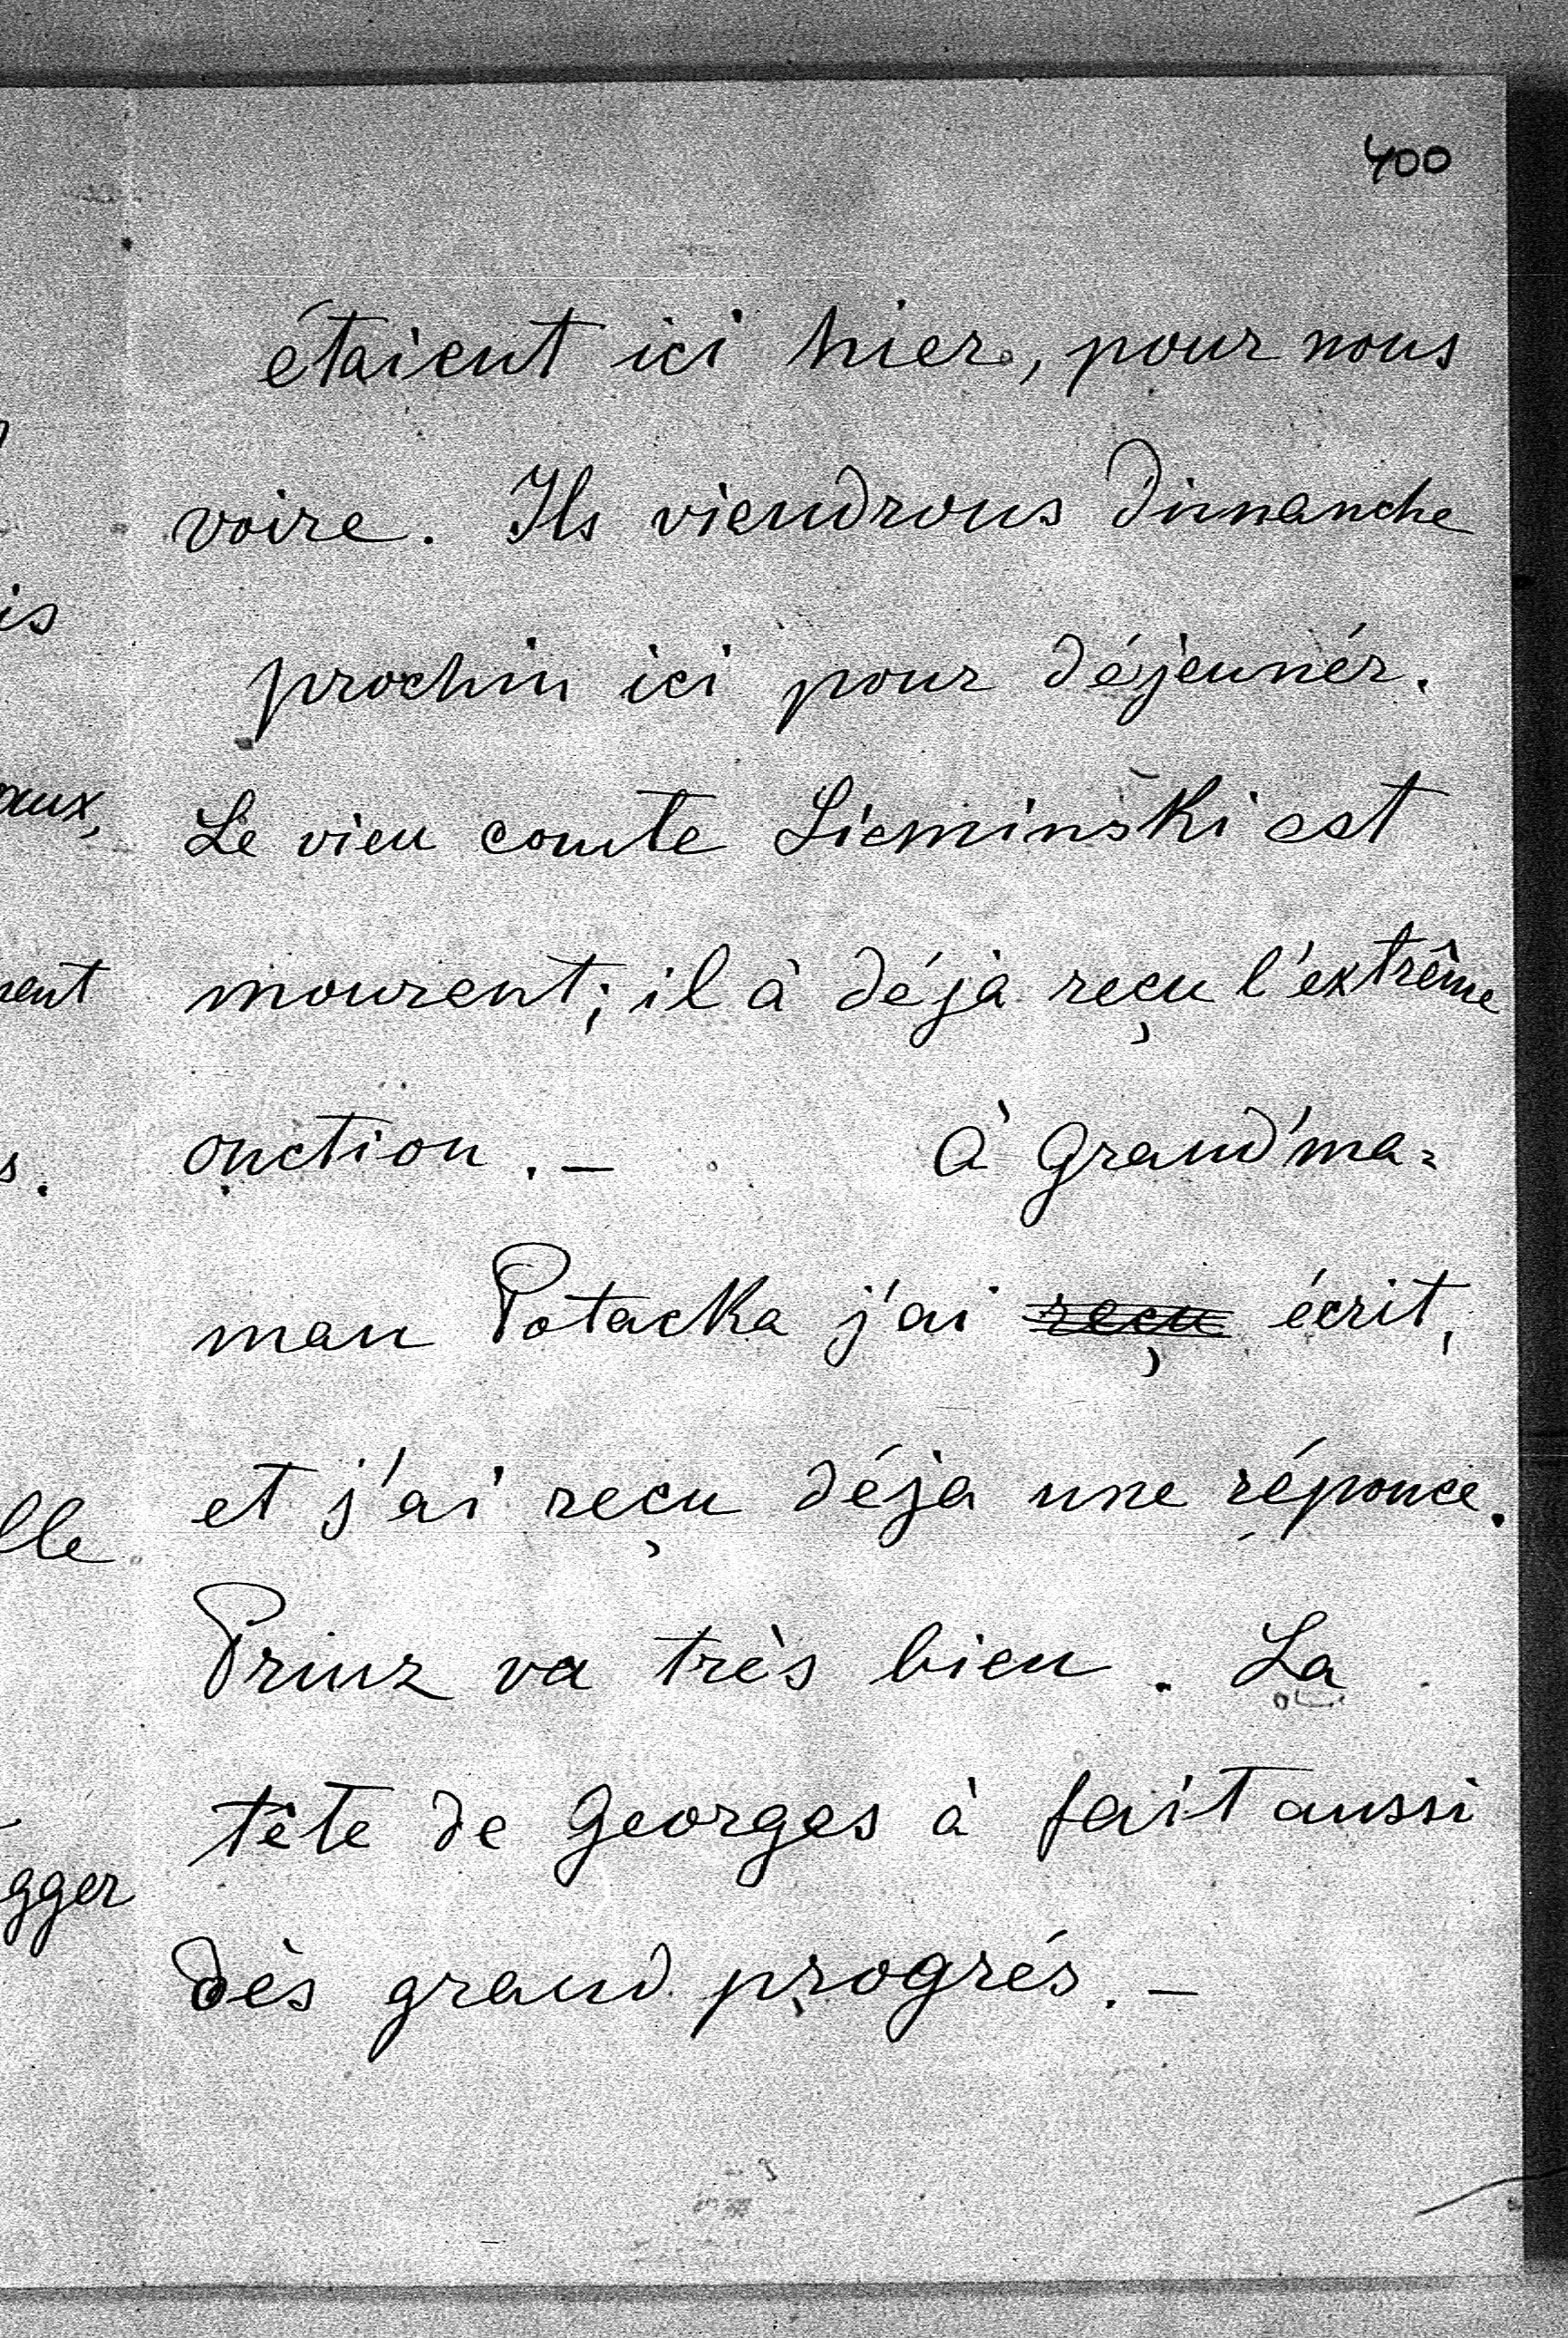 400
étaient ici hier, pour nous
voire. Ils viendrons Dimanche
prochin ici pour déjeunér.
Le vieu comte Sieminski est
mourent; il à déjà reçu l'extrême
onction. — à Grand'ma=
man Potacka j'ai reçu écrit,
et j'ai reçu déja une réponce.
Prinz va très bien. La
tête de Georges à fait aussi
dès grand progrés. —
is
aux,
lle
gger